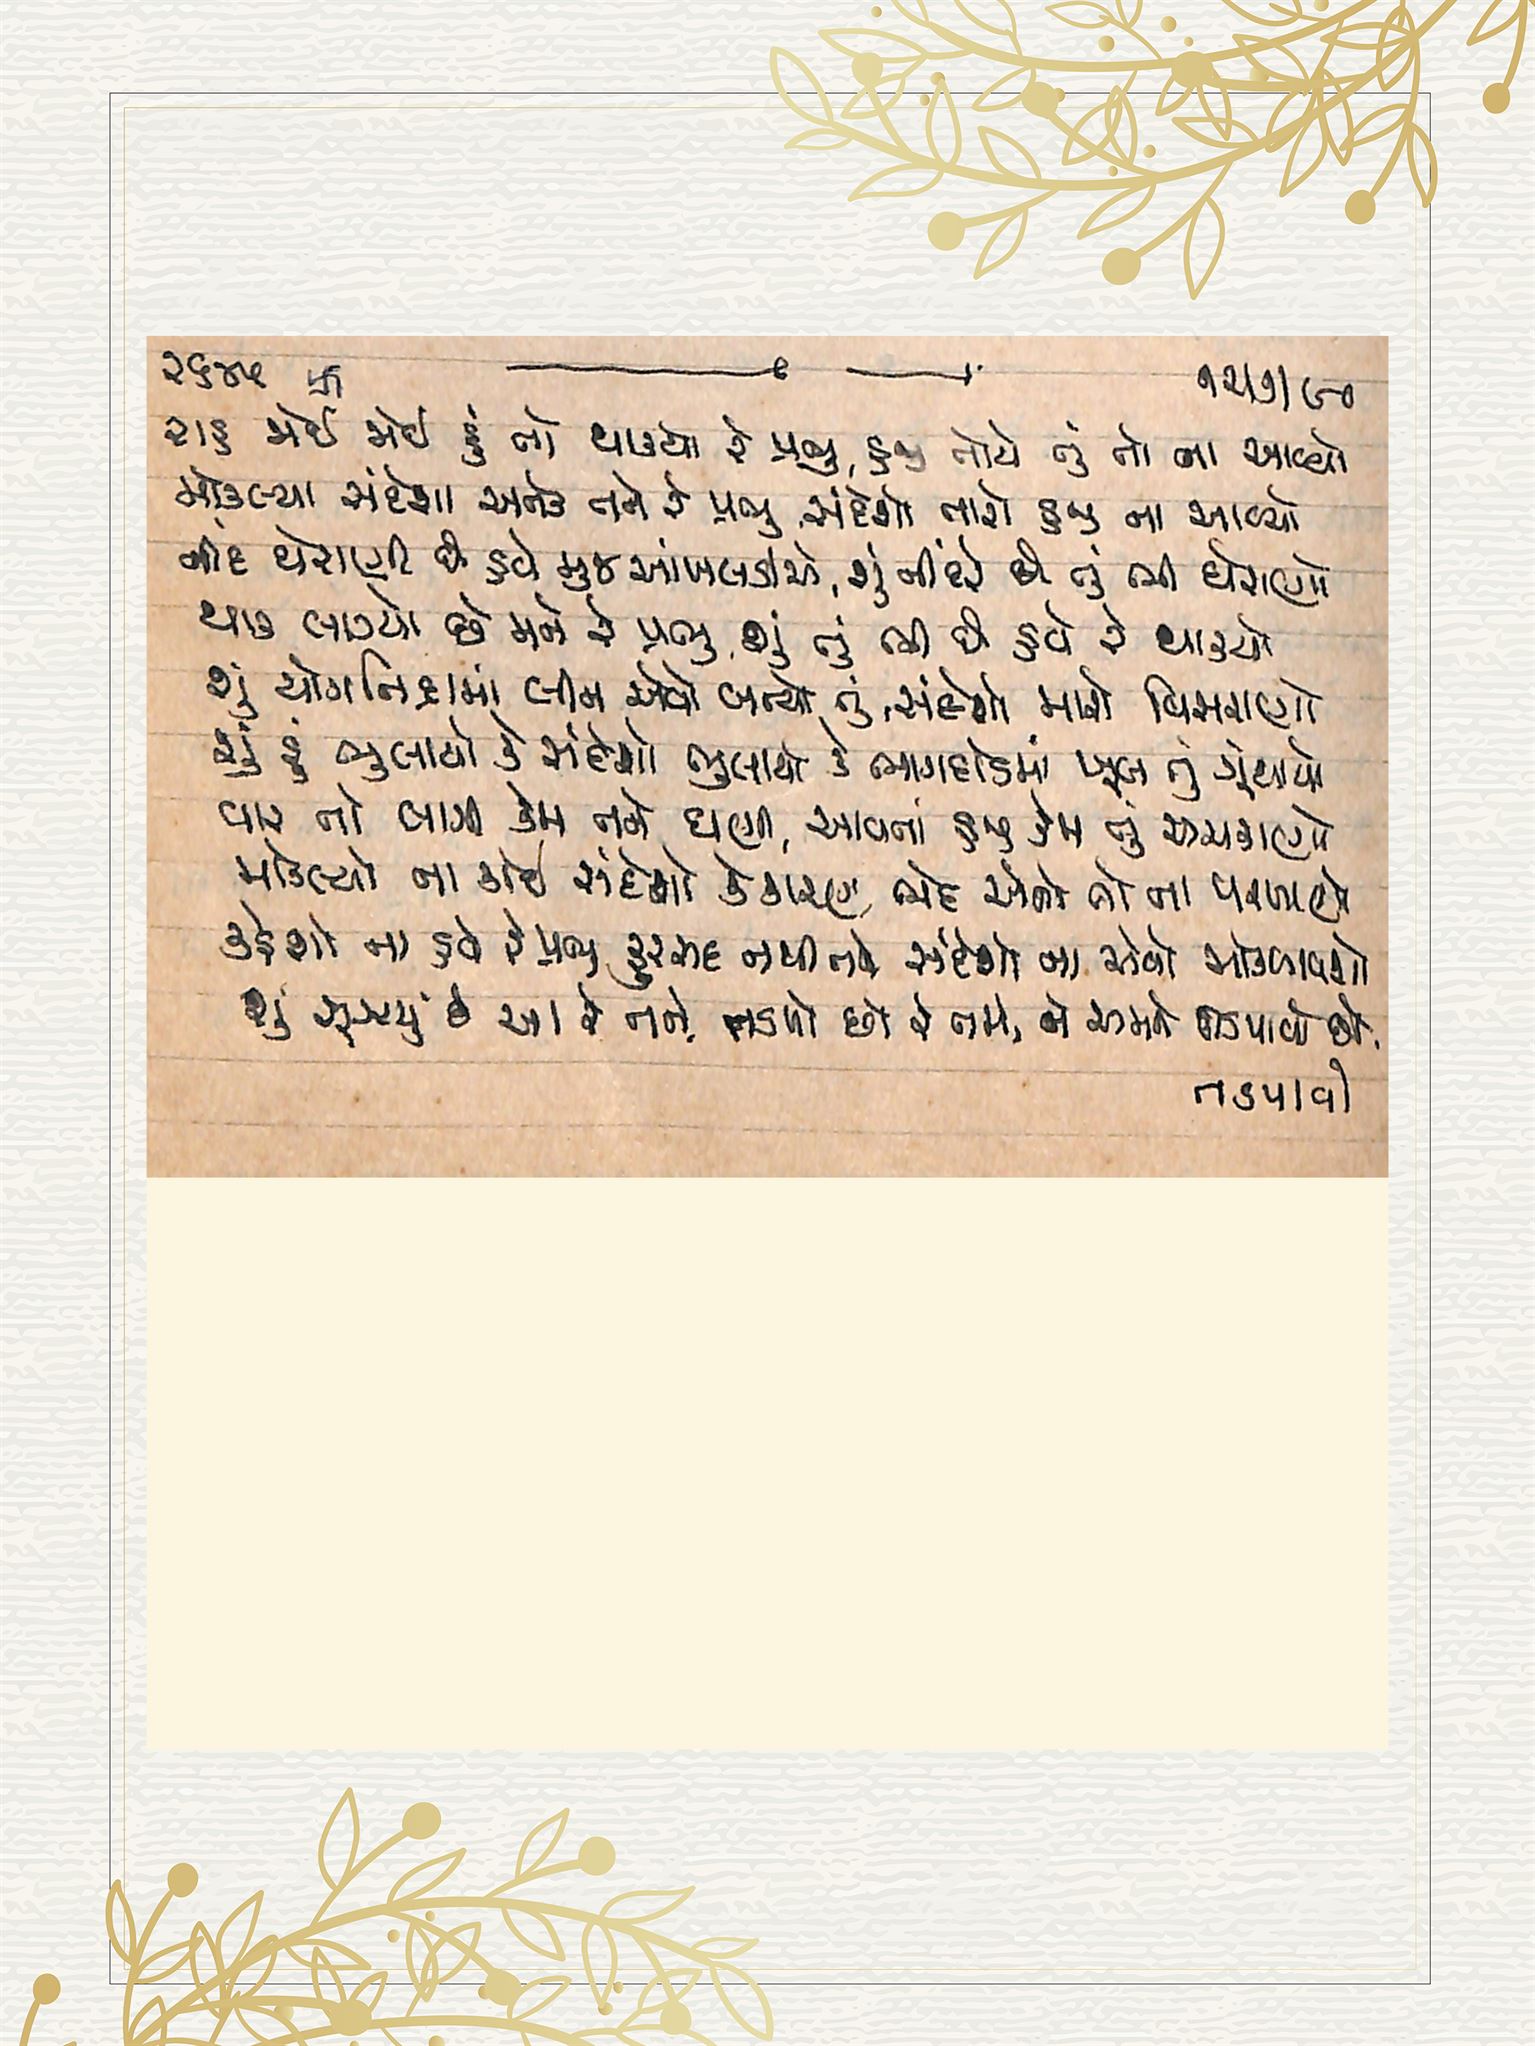 ૨૬૪૫ 卐 ૧૨/૭/૯૦
રાહ જોઈ જોઈ હું તો થાક્યો રે પ્રભુ, હજી તોયે તું તો ના આવ્યો
મોકલ્યા સંદેશા અનેક તને રે પ્રભુ, સંદેશો તારો હજી ના આવ્યો
નીંદ ઘેરાણી છે હવે મુજ આંખલડીએ, શું નીંદરે છે તું ભી ઘેરાણો
થાક લાગ્યો છે મને રે પ્રભુ, શું તું ભી છે હવે રે થાક્યો
શું યોગનિદ્રામાં લીન એવો બન્યો તું, સંદેશો મારો વિસરાણો
શું હું ભુલાયો કે સંદેશો ભુલાયો કે ભાગદોડમાં ખૂબ તું ગૂંથાયો
વાર તો લાગી કેમ તને ઘણી, આવતાં હજી કેમ તું અચકાણો
મોકલ્યો ના કોઈ સંદેશો કે કારણ, ભેદ એનો તો ના પરખાણો
કહેશો ના હવે રે પ્રભુ ફુરસદ નથી તને સંદેશો ના એવો મોકલાવશો
શું સૂઝ્યું છે આ રે તને, તડપો છો રે તમે, ને અમને તડપાવો છો.
તડપાવી